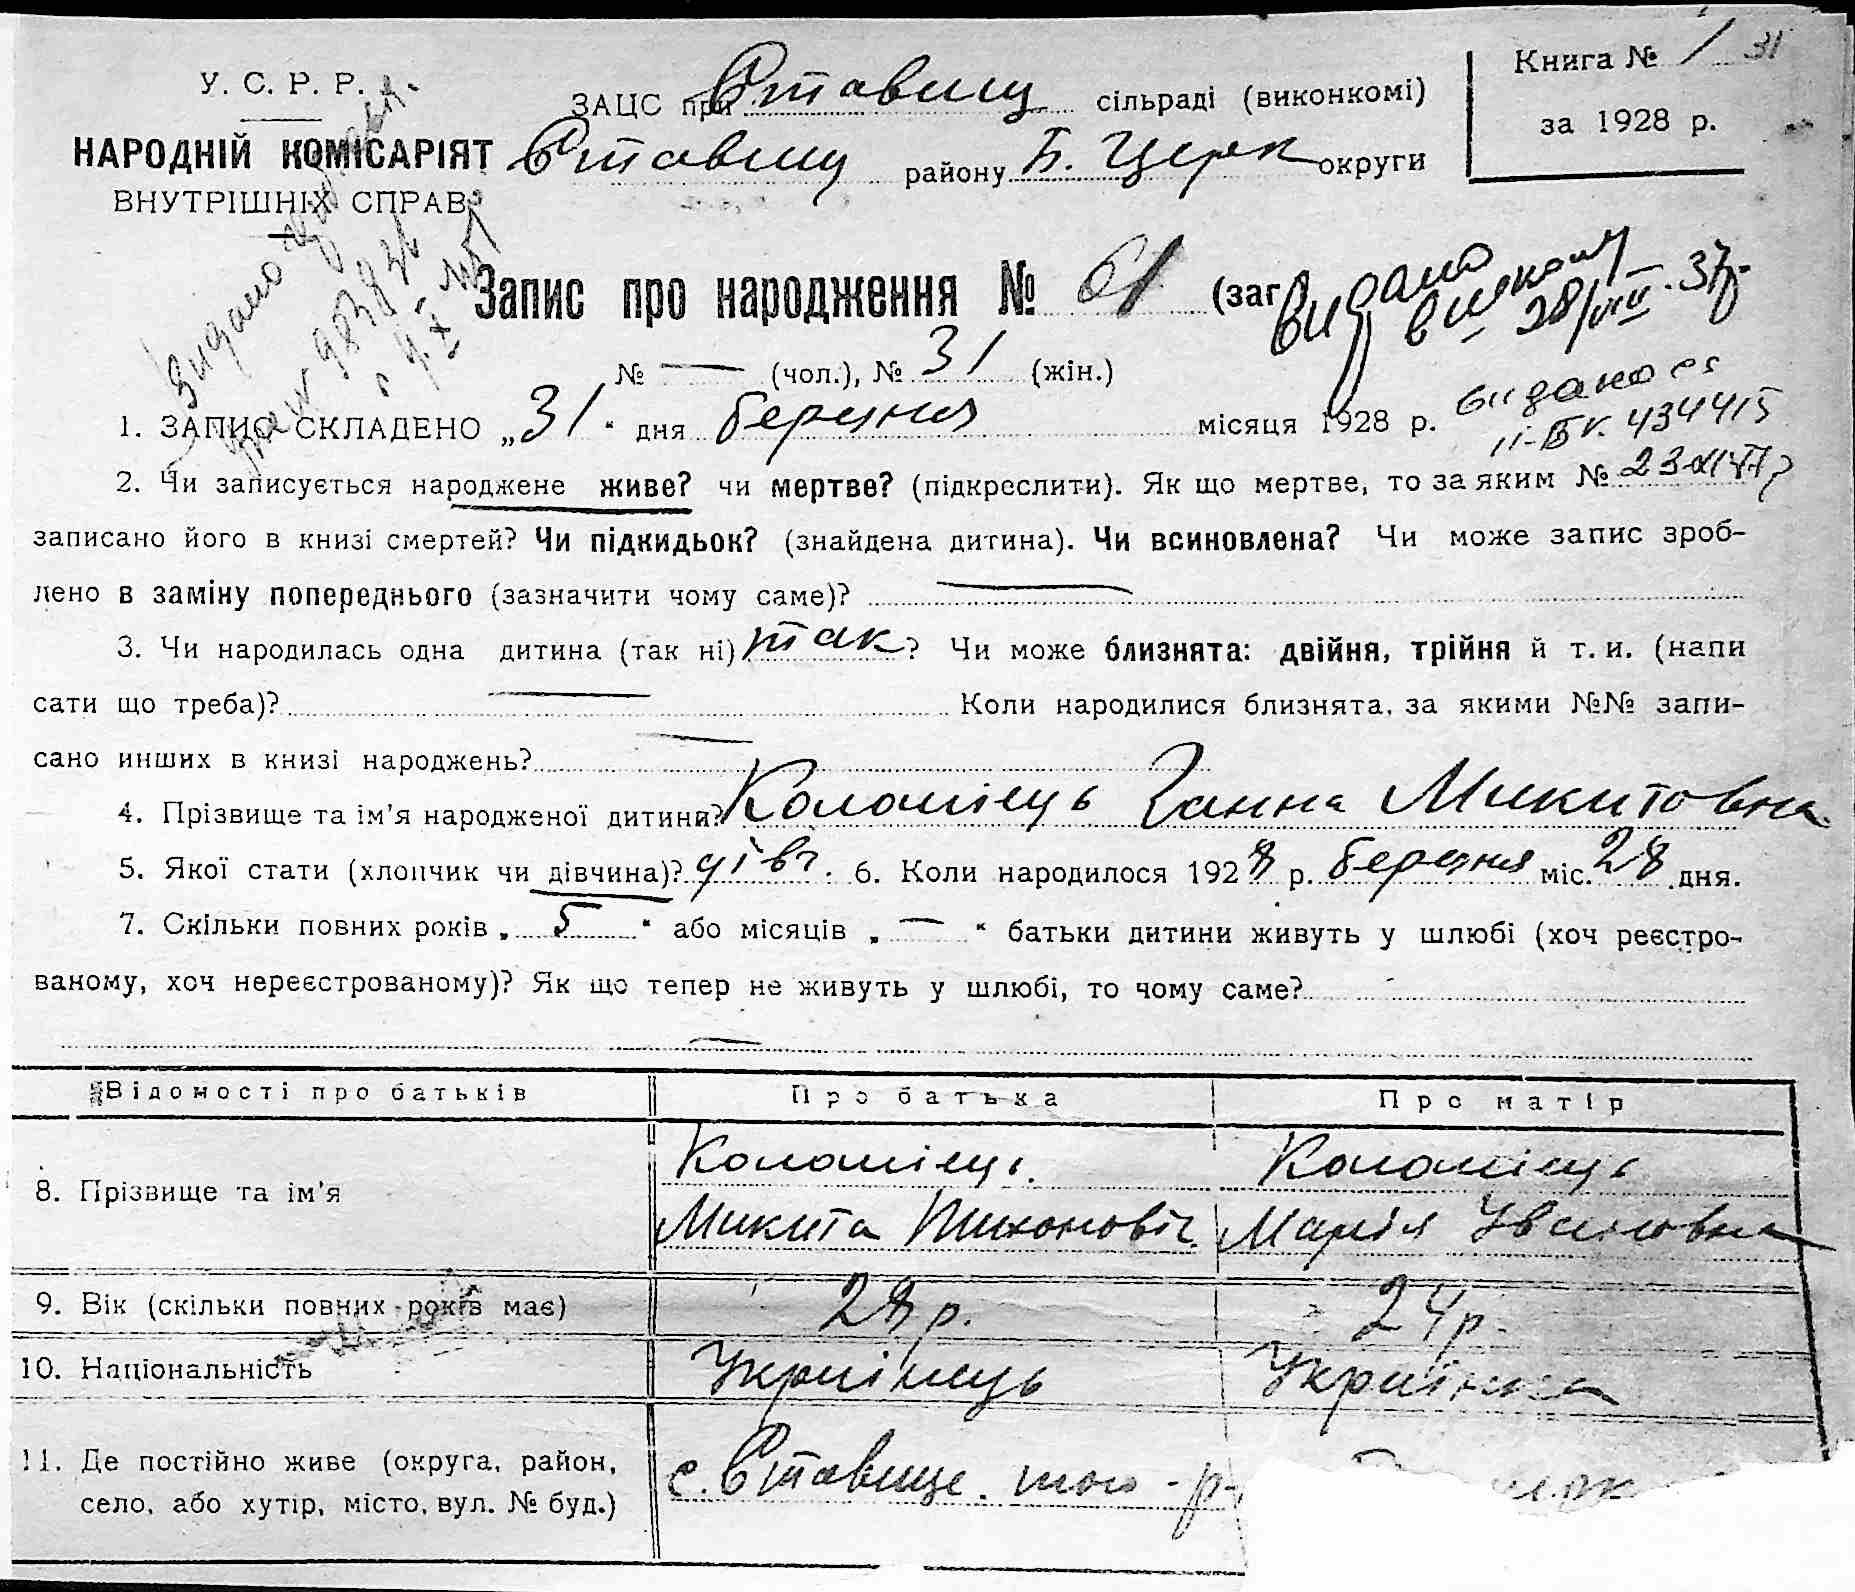 У. С. Р. Р.
НАРОДНІЙ КОМІСАРІЯТ
ВНУТРІШНІХ СПРАВ
ЗАЦС при Ставищ сільраді (виконкомі)
Ставищ району Б. Церк округи
Книга № 1 31
за 1928 р.
Запис про народження № 61 (заг
видано
28/VIII-37р.
№ — (чол.), № 31 (жін.)
видано
434415
1. ЗАПИС СКЛАДЕНО „31“ дня березня місяця 1928 р.
2. Чи записується народжене живе? чи мертве? (підкреслити). Як що мертве, то за яким №
записано його в книзі смертей? Чи підкидьок? (знайдена дитина). Чи всиновлена? Чи може запис зроб-
лено в заміну попереднього (зазначити чому саме)? —
3. Чи народилась одна дитина (так ні) так? Чи може близнята: двійня, трійня й т. и. (напи
сати що треба)? — Коли народилися близнята, за якими №№ запи-
сано инших в книзі народжень? —
4. Прізвище та ім'я народженої дитини? Коломієць Ганна Микитовна
5. Якої стати (хлопчик чи дівчина)? дівч. 6. Коли народилося 1928 р. березня міс. 28 дня.
7. Скільки повних років „ 5 “ або місяців „ — “ батьки дитини живуть у шлюбі (хоч реєстро-
ваному, хоч нереєстрованому)? Як що тепер не живуть у шлюбі, то чому саме?
—
Відомості про батьків Про батька Про матір
8. Прізвище та ім'я Коломієць Микита Тихонович Коломієць Марія Ивановна
9. Вік (скільки повних років має) 28 р. 24 р.
10. Національність Українець Українка
11. Де постійно живе (округа, район,
село, або хутір, місто, вул. № буд.) с. Ставище того-р-